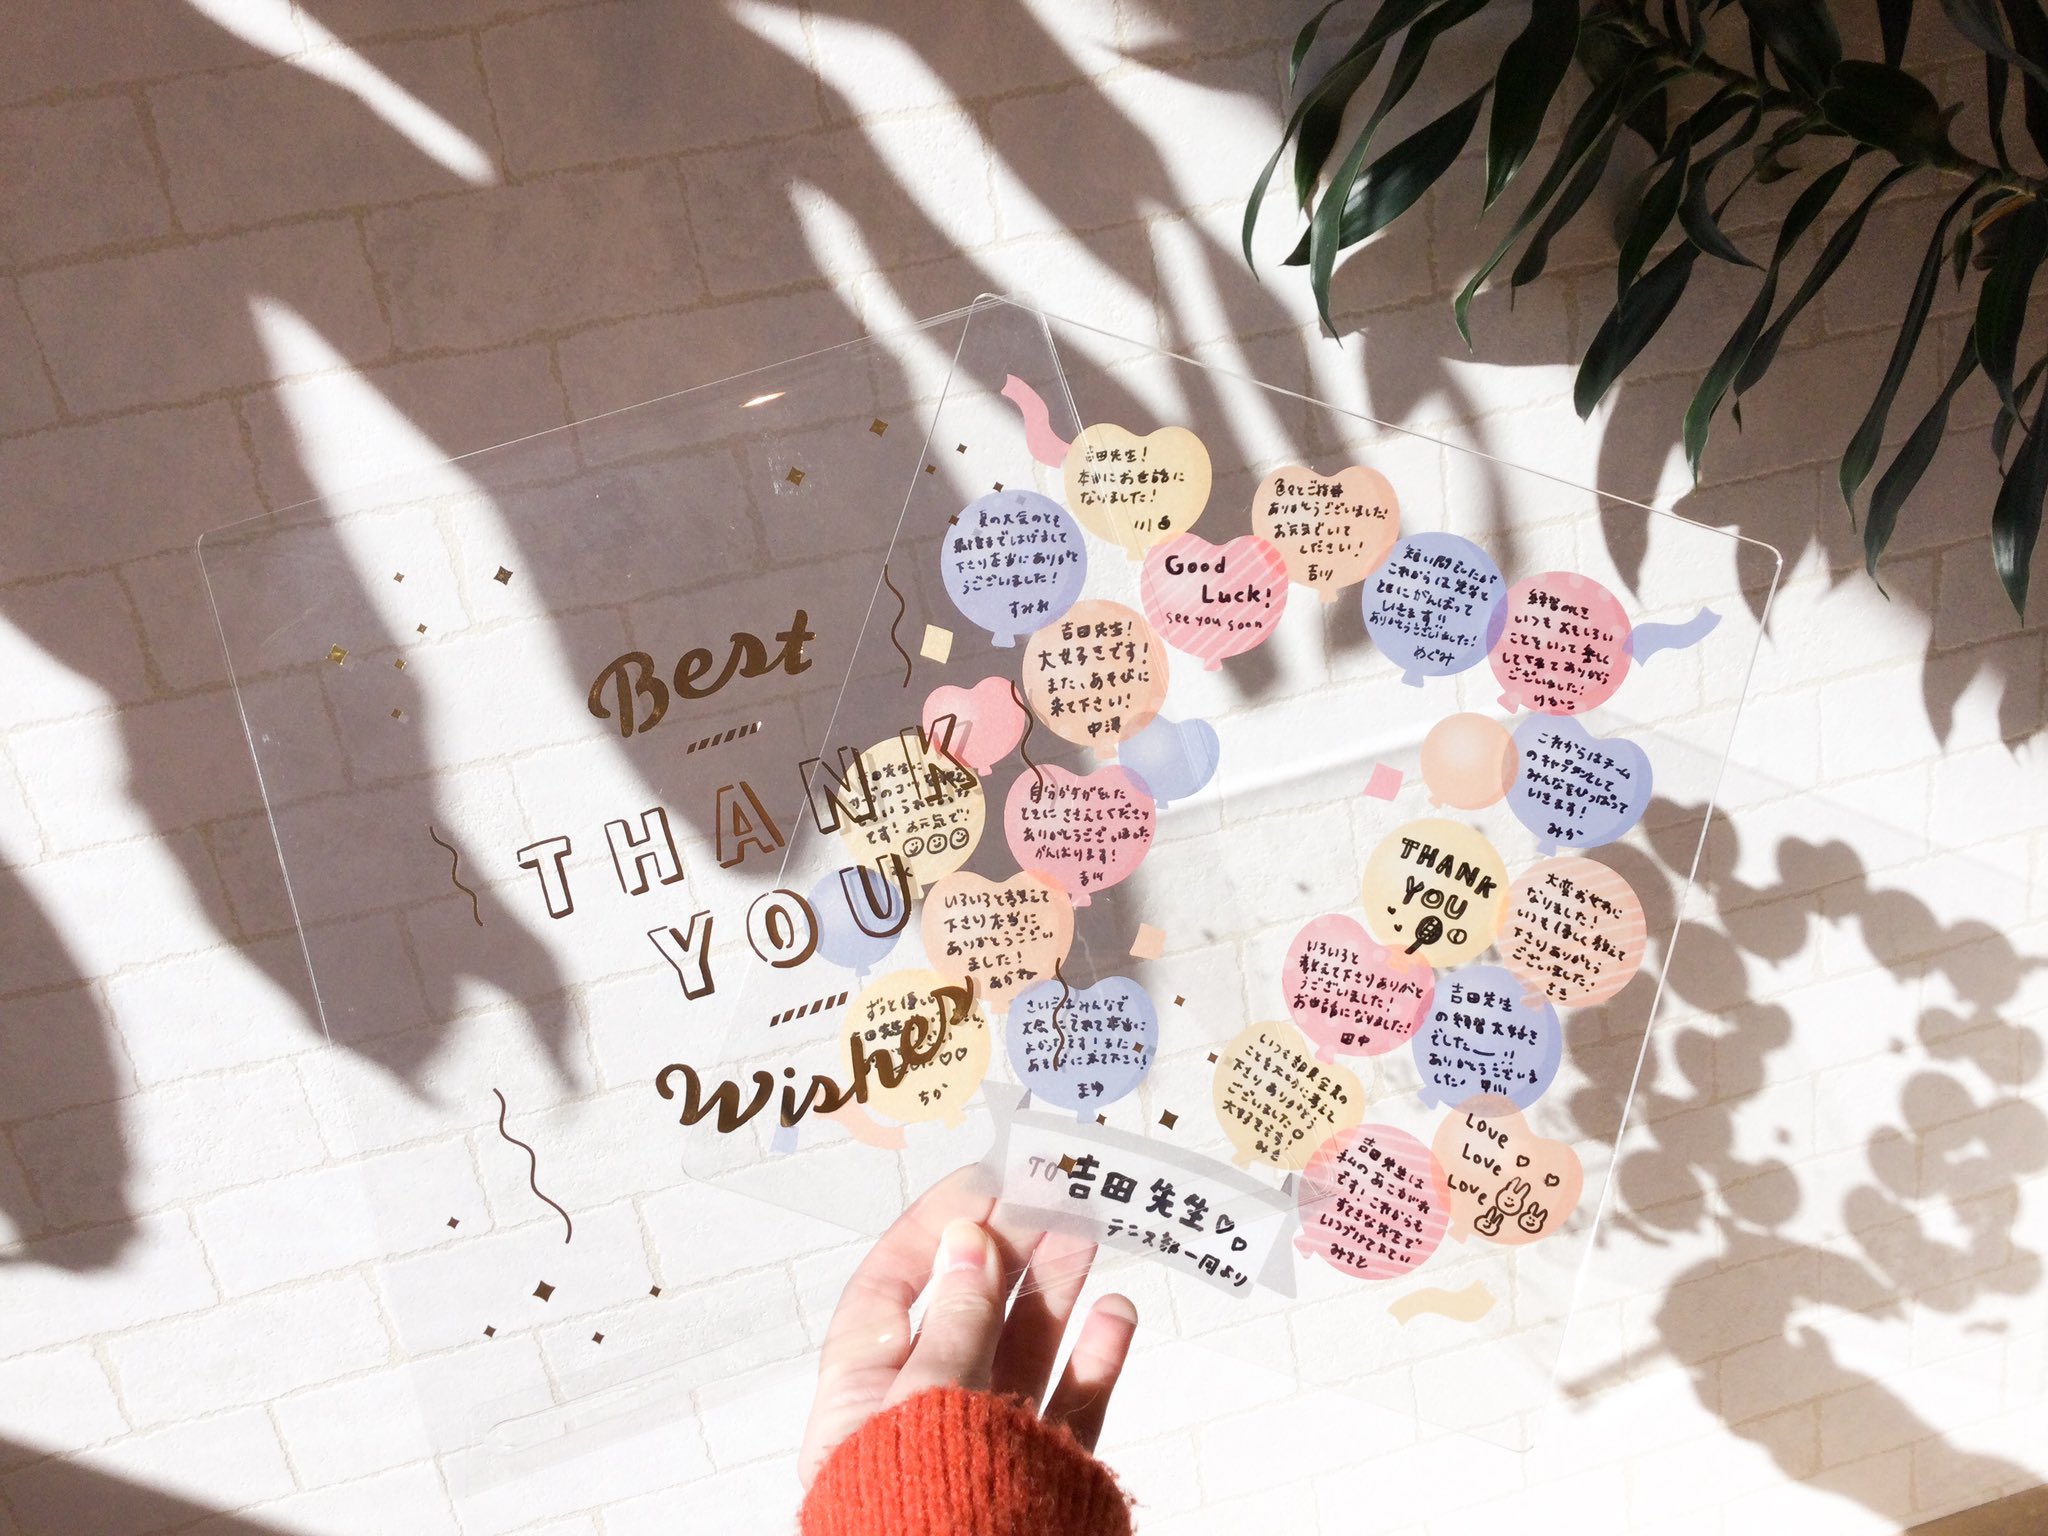 Best
THANK
YOU
Wishes
吉田先生!
本当にお世話に
なりました!
川
夏の大会のとき
最後まではげまして
下さり本当にありがと
うございました!
すみれ
色々とご指導
ありがとうございました!
お元気でいて
ください!
吉川
Good
Luck!
see you soon
短い間でしたが
これからは先生と
ともにがんばって
いきます!!
ありがとうございました!
めぐみ
練習のとき
いつもおもしろい
ことをいって楽しく
して下さりありがとう
ございました!
りかこ
吉田先生!
大好きです!
また、あそびに
来て下さい!
中澤
これからはチーム
のキャプテンとして
みんなをひっぱって
いきます!
みか
です! お元気で!
自分がケガをした
ときにささえてくださり
ありがとうございました
がんばります!
吉川
THANK
YOU
大変お世話に
なりました!
いつも優しく教えて
下さりありがとう
ございました。
さき
いろいろと教えて
下さり本当に
ありがとうござい
ました!
あかね
いろいろと
教えて下さりありがと
うございました!
お世話になりました!
田中
吉田先生
の練習大好き
でしたー!!
ありがとうございま
した!
ずっと優しい
ちか
さいごはみんなで
大会にでれて本当に
よかったです!また
あそびに来て下さい!
まゆ
いつも部員全員の
ことを大切に考えて
下さりありがとう
ございました
大好きです!
みき
吉田先生は
私のあこがれ
です!これからも
すてきな先生で
いつづけて下さい
みさと
Love
Love
Love
TO 吉田先生
テニス部一同より